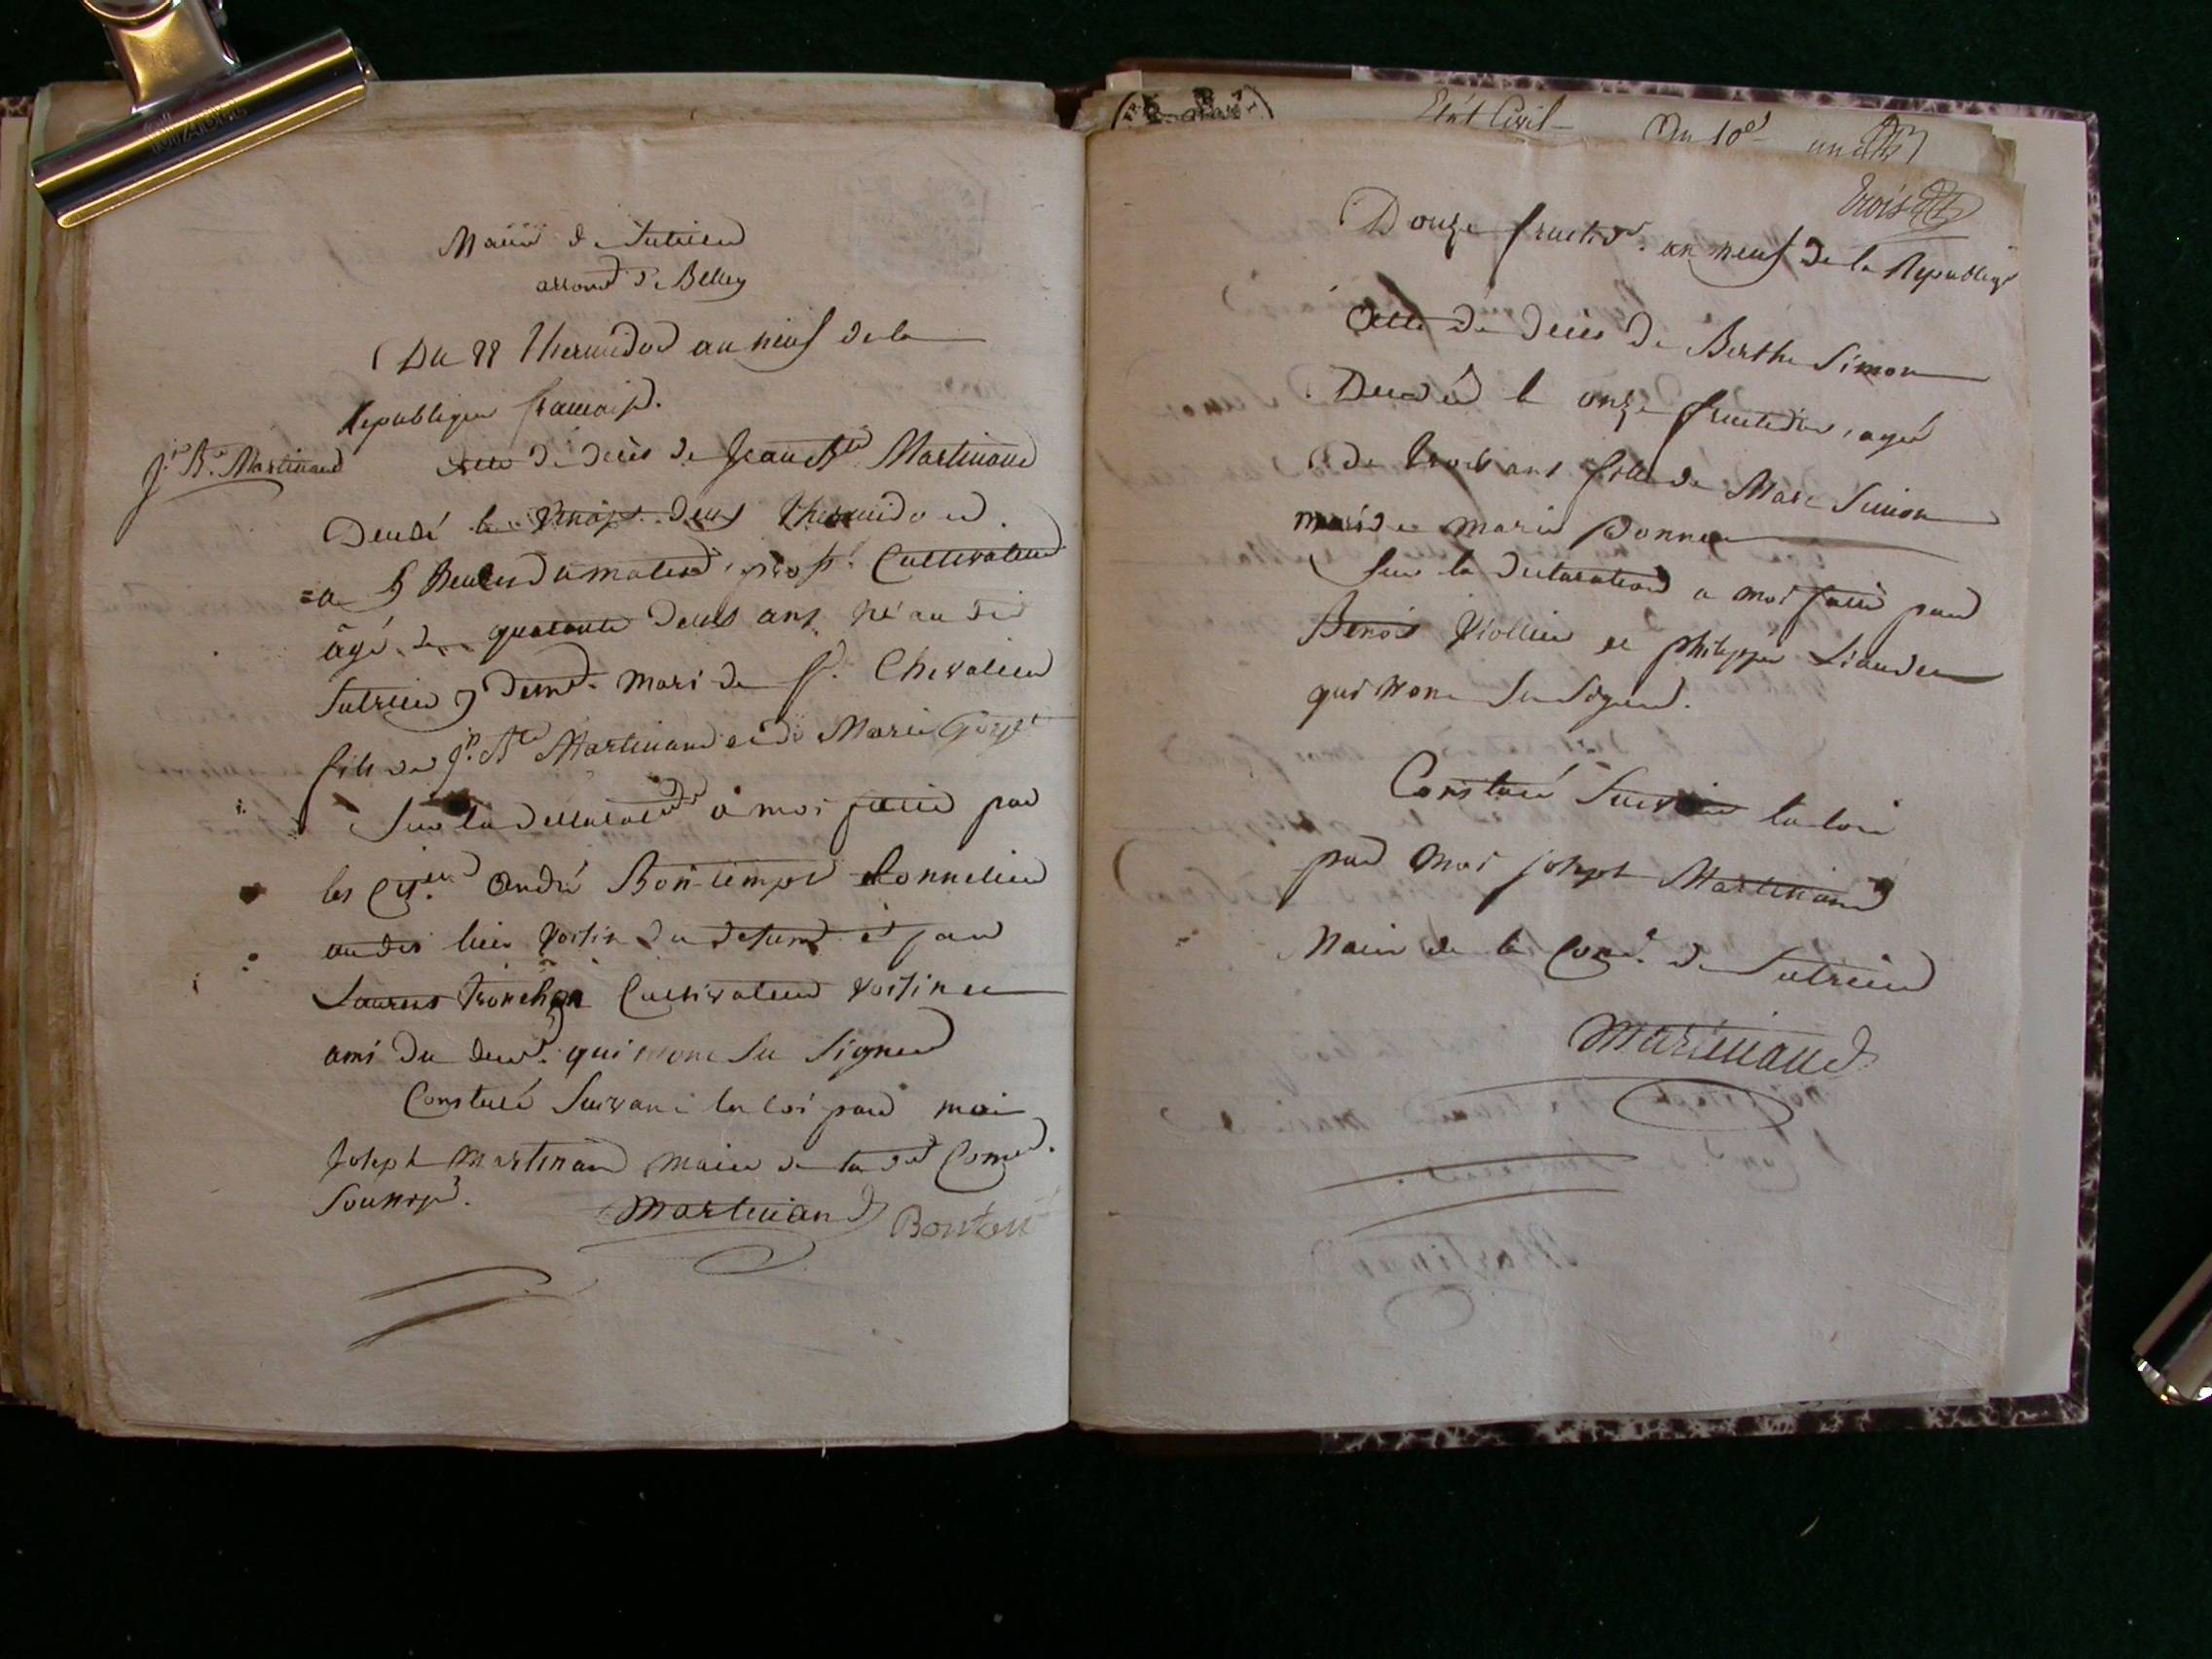 Mairie de Sutrieu
arrond. de Belley
Du 22 Thermidor an neuf de la
Republique francaise.
Jn Bte Martinand
Acte de décès de Jean Bte Martinand
Decedé le vingt deux Thermidor
= a 5 heures du matin, prof. Cultivateur
âgé de quarante deux ans né au dit
Sutrieu y demt. mari de fse. Chevalier
fils de Jn Bte Martinand et de Marie
Sur la declaration a moi faite par
les Cit.ens André Bon-temps Tonnelier
au dit lieu voisin du defunt et par
Laurens tronchon Cultivateur voisin et
ami du decd. qui n'ont su signer
Constaté Suivant la loi par moi
Joseph Martinand maire de la dte Come.
Soussigné.
Martinand Bontent
Etat Civil An 10e
trois
Douze fructidr. an neuf de la Republique
Acte de décès de Berthe Simon
Decedée le onze fructidor, agée
De trois ans fille de Marc Simon
mari de Marie Bonne
Sur la declaration a moi faite par
Benoit Viollier et philippe Liaudet
qui n'ont su signer.
Constaté Suivant la loi
par moi joseph Martinand
Maire de la Come. de Sutrieu
Martinand